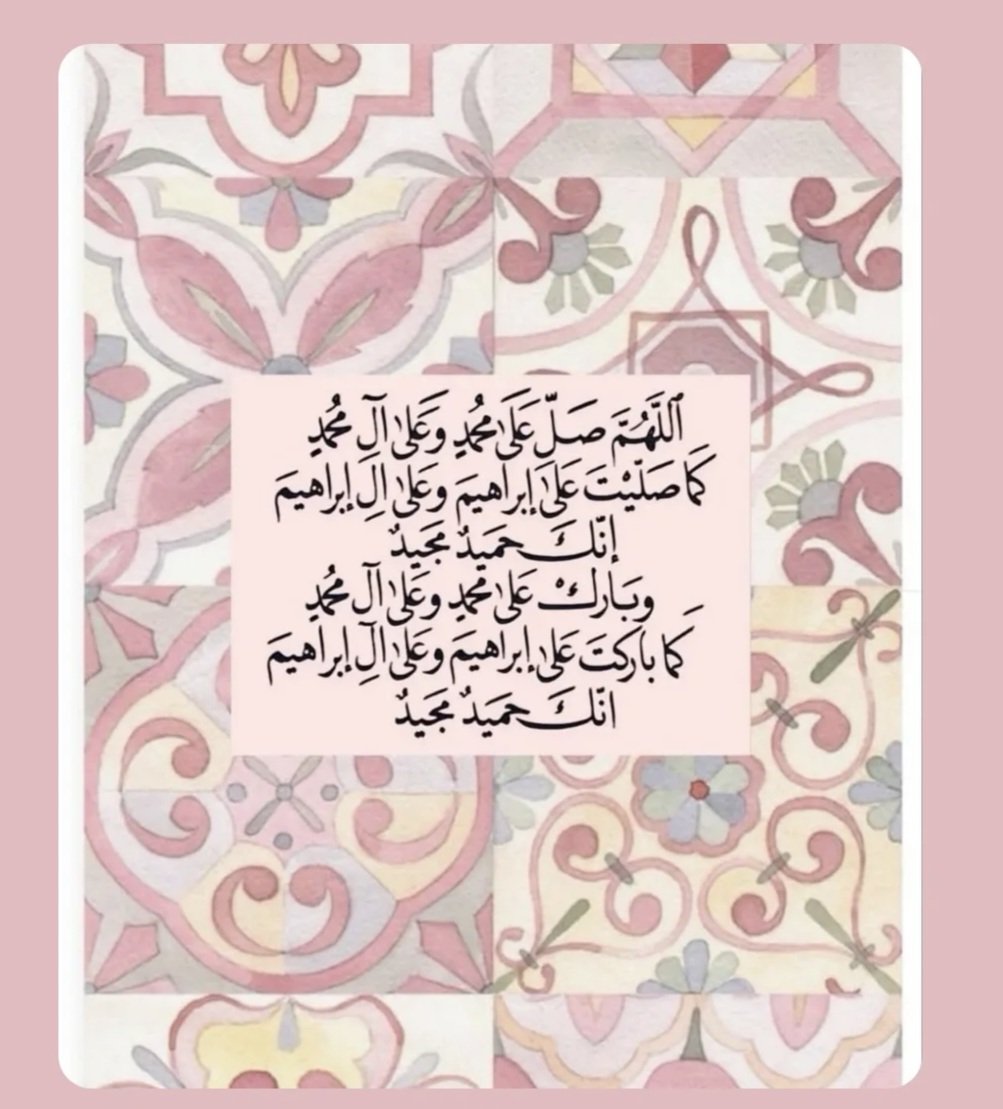 ٱللَّهُمَّ صَلِّ عَلَىٰ مُحَمَّدٍ وَعَلىٰ آلِ مُحَمَّدٍ
كَمَا صَلَّيْتَ عَلىٰ إبراهيمَ وعَلىٰ الِ إبراهيمَ
إنّكَ حَميدٌ مَجيدٌ
وبَارِكْ عَلىٰ مُحَمَّدٍ وعَلىٰ آلِ مُحَمَّدٍ
كَما باركتَ عَلىٰ إبراهيمَ وعَلىٰ آلِ إبراهيمَ
انّكَ حَميدٌ مَجيدٌ